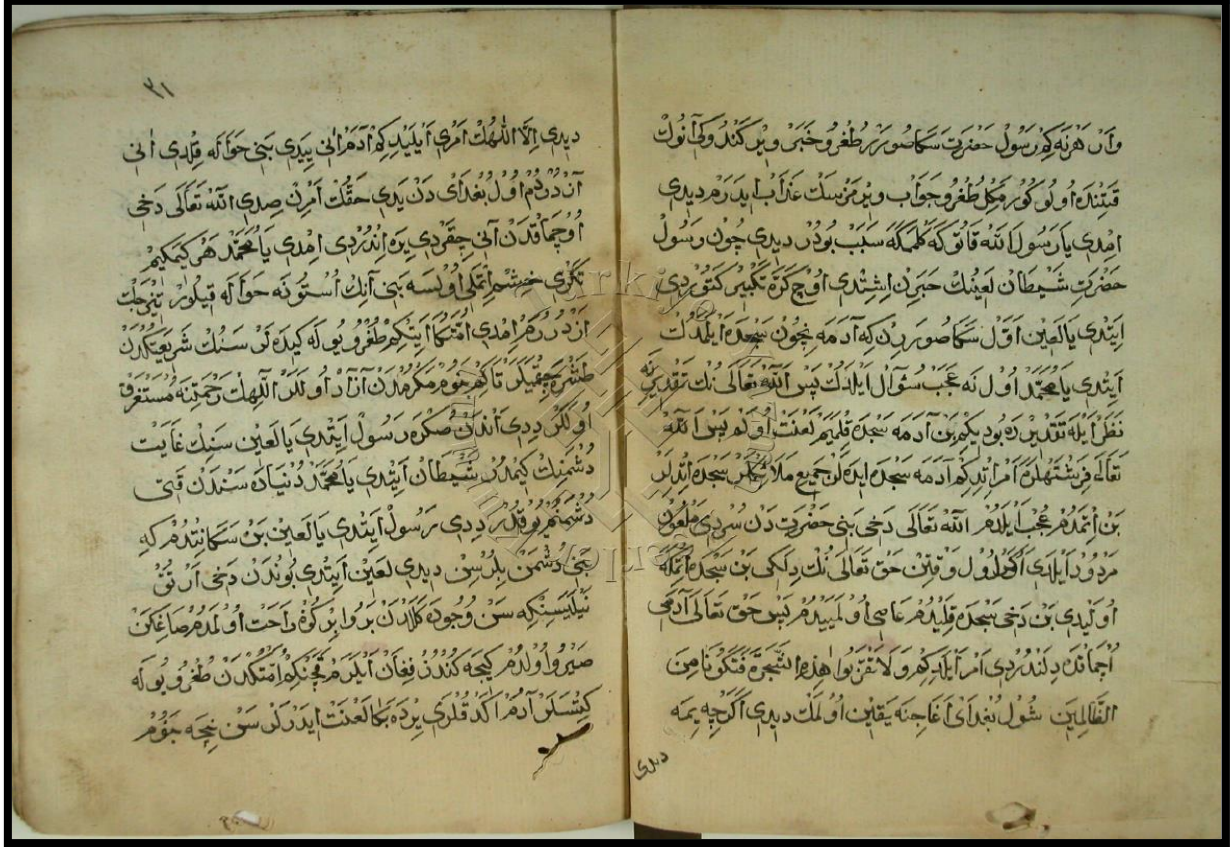 وار هرنه كم رسول حضرت سكا صورر طغرو خبر ويركندوكى آنوك
قتنده اولور كورمكل طغرو جواب ويرمزسك عذاب ايدرم ديدى
امدى يا رسول الله قاتوكه كلمكه سبب بودر ديدى چون رسول
حضرت شيطان لعينك خبرن اشتدى اوچ كره تكبير كتوردى
ايتدى يا لعين اول سكا صوررن كه آدمه نچون سجده ايلمدك
ايتدى يا محمد اول نه عجب سؤال ايلدك پس الله تعالى نك تقديرينه
نظر ايله تقديرده بوديكم بن آدمه سجده قلميم لعنت اولم پس الله
تعالى فرشتهلره امر اتدكم آدمه سجده ايدهلن جميع ملائكلر سجده اتدلر
بن اتمدم عجب ايلدم الله تعالى دخى بنى حضرتدن سردى ملعون
مردود ايلدى اول وقتن حق تعالى نك دلكى بن سجده اتمكه
اوليدى بن دخى سجده قليدم عاصى اولمييدم پس حق تعالى آدمى
اچماقده دلندردى امر ايلدكم ولا تقربوا هذه الشجرة فتكونا من
الظالمين شول بغداى اغاجنه يقين اولمك ديدى اكرچه يمه
ديدى
٣١
ديدى الا اللهك امرى ايليدكم آدم انى ييدى بنى حوا اله قلدى انى
آندردم اول بغدايدن يدى حقك امرن صدى الله تعالى دخى
اوچماقدن آنى چقردى يره اندردى امدى يا محمد هر كيمكيم
تكرى خشم اتمكلى اولسه بنى آنك استونه حواله قيلور
ازدررم امدى امتكا ايتكم طغرو يوله كيدهلن سنك شريعتكدن
طشره چقميلر تا كم بنوم مكرمدن آزاد اولالر اللهك رحمتنه مستغرق
اولالر ددى اندن صكره رسول ايتدى يا لعين سنك غايت
دشمنك كيمدر شيطان ايتدى يا محمد دنياده سندن قتى
دشمنم يوقدر ددى رسول ايتدى يا لعين بن سكا نتدم كه
بنى دشمن بلرسن ديدى لعين ايتدى بوندن دخى ارتق
نيلسنكه سن وجوده كلالدن برو بر كون راحت اولمدم صاغكن
صيرو اولدم كيجه كندز فغان ايلرم قچنكم امتكدن طغرو يوله
كيتسلر آدم اكدقلرى يرده بكا لعنت ايدرلر سن نچه بنوم